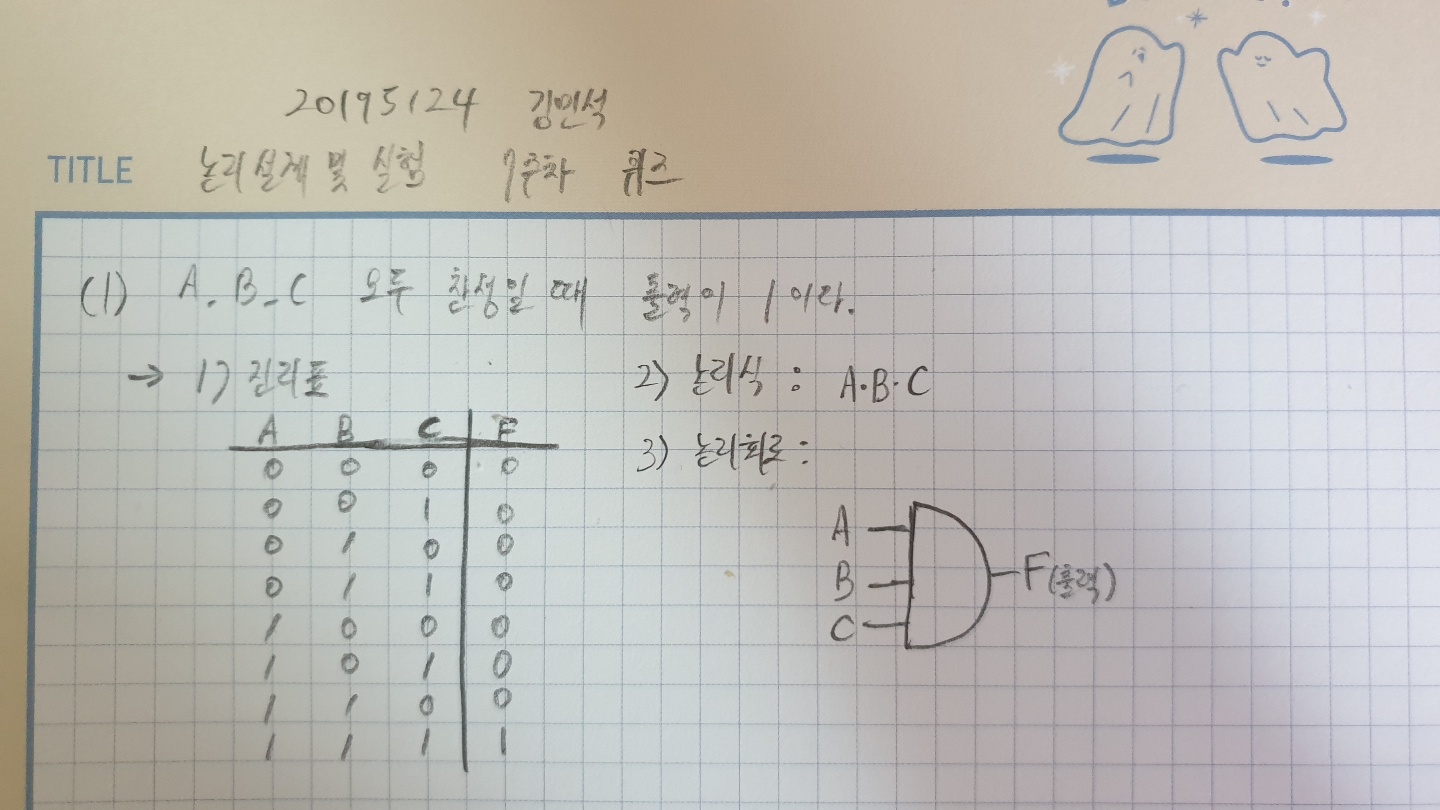 20195124 김민석
TITLE 논리설계 및 실험 7주차 퀴즈
(1) A.B.C 모두 찬성일 때 출력이 1이다.
→ 1) 진리표
A B C F
0 0 0 0
0 0 1 0
0 1 0 0
0 1 1 0
1 0 0 0
1 0 1 0
1 1 0 0
1 1 1 1
2) 논리식 : A·B·C
3) 논리회로:
A
B
C
F(출력)